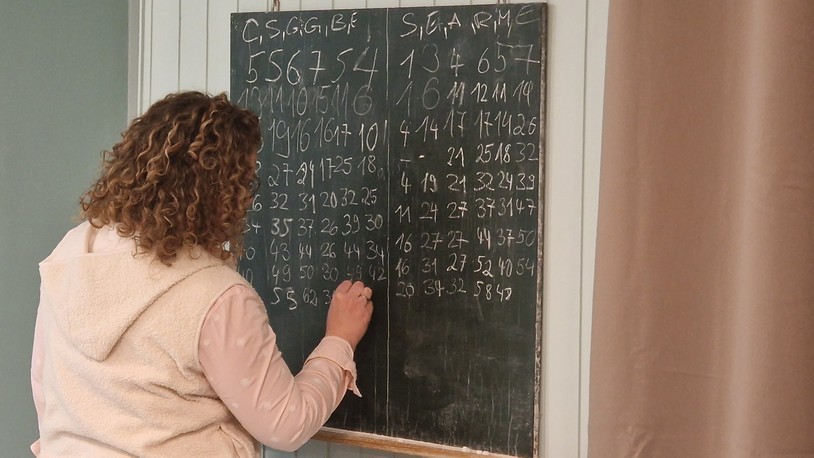 C, S, G, G, B, E S, E, A, R, M, E
5 5 6 7 5 4 1 3 4 6 5 7
13 11 10 15 11 6 1 6 11 12 11 19
19 16 16 17 10 4 14 17 17 14 26
27 24 17 25 18 - - 21 25 18 32
32 31 20 32 25 4 19 21 32 24 39
35 37 26 39 30 11 24 27 37 31 47
43 44 26 44 34 16 27 27 44 37 50
49 50 30 42 16 31 27 52 40 54
55 62 34 32 58